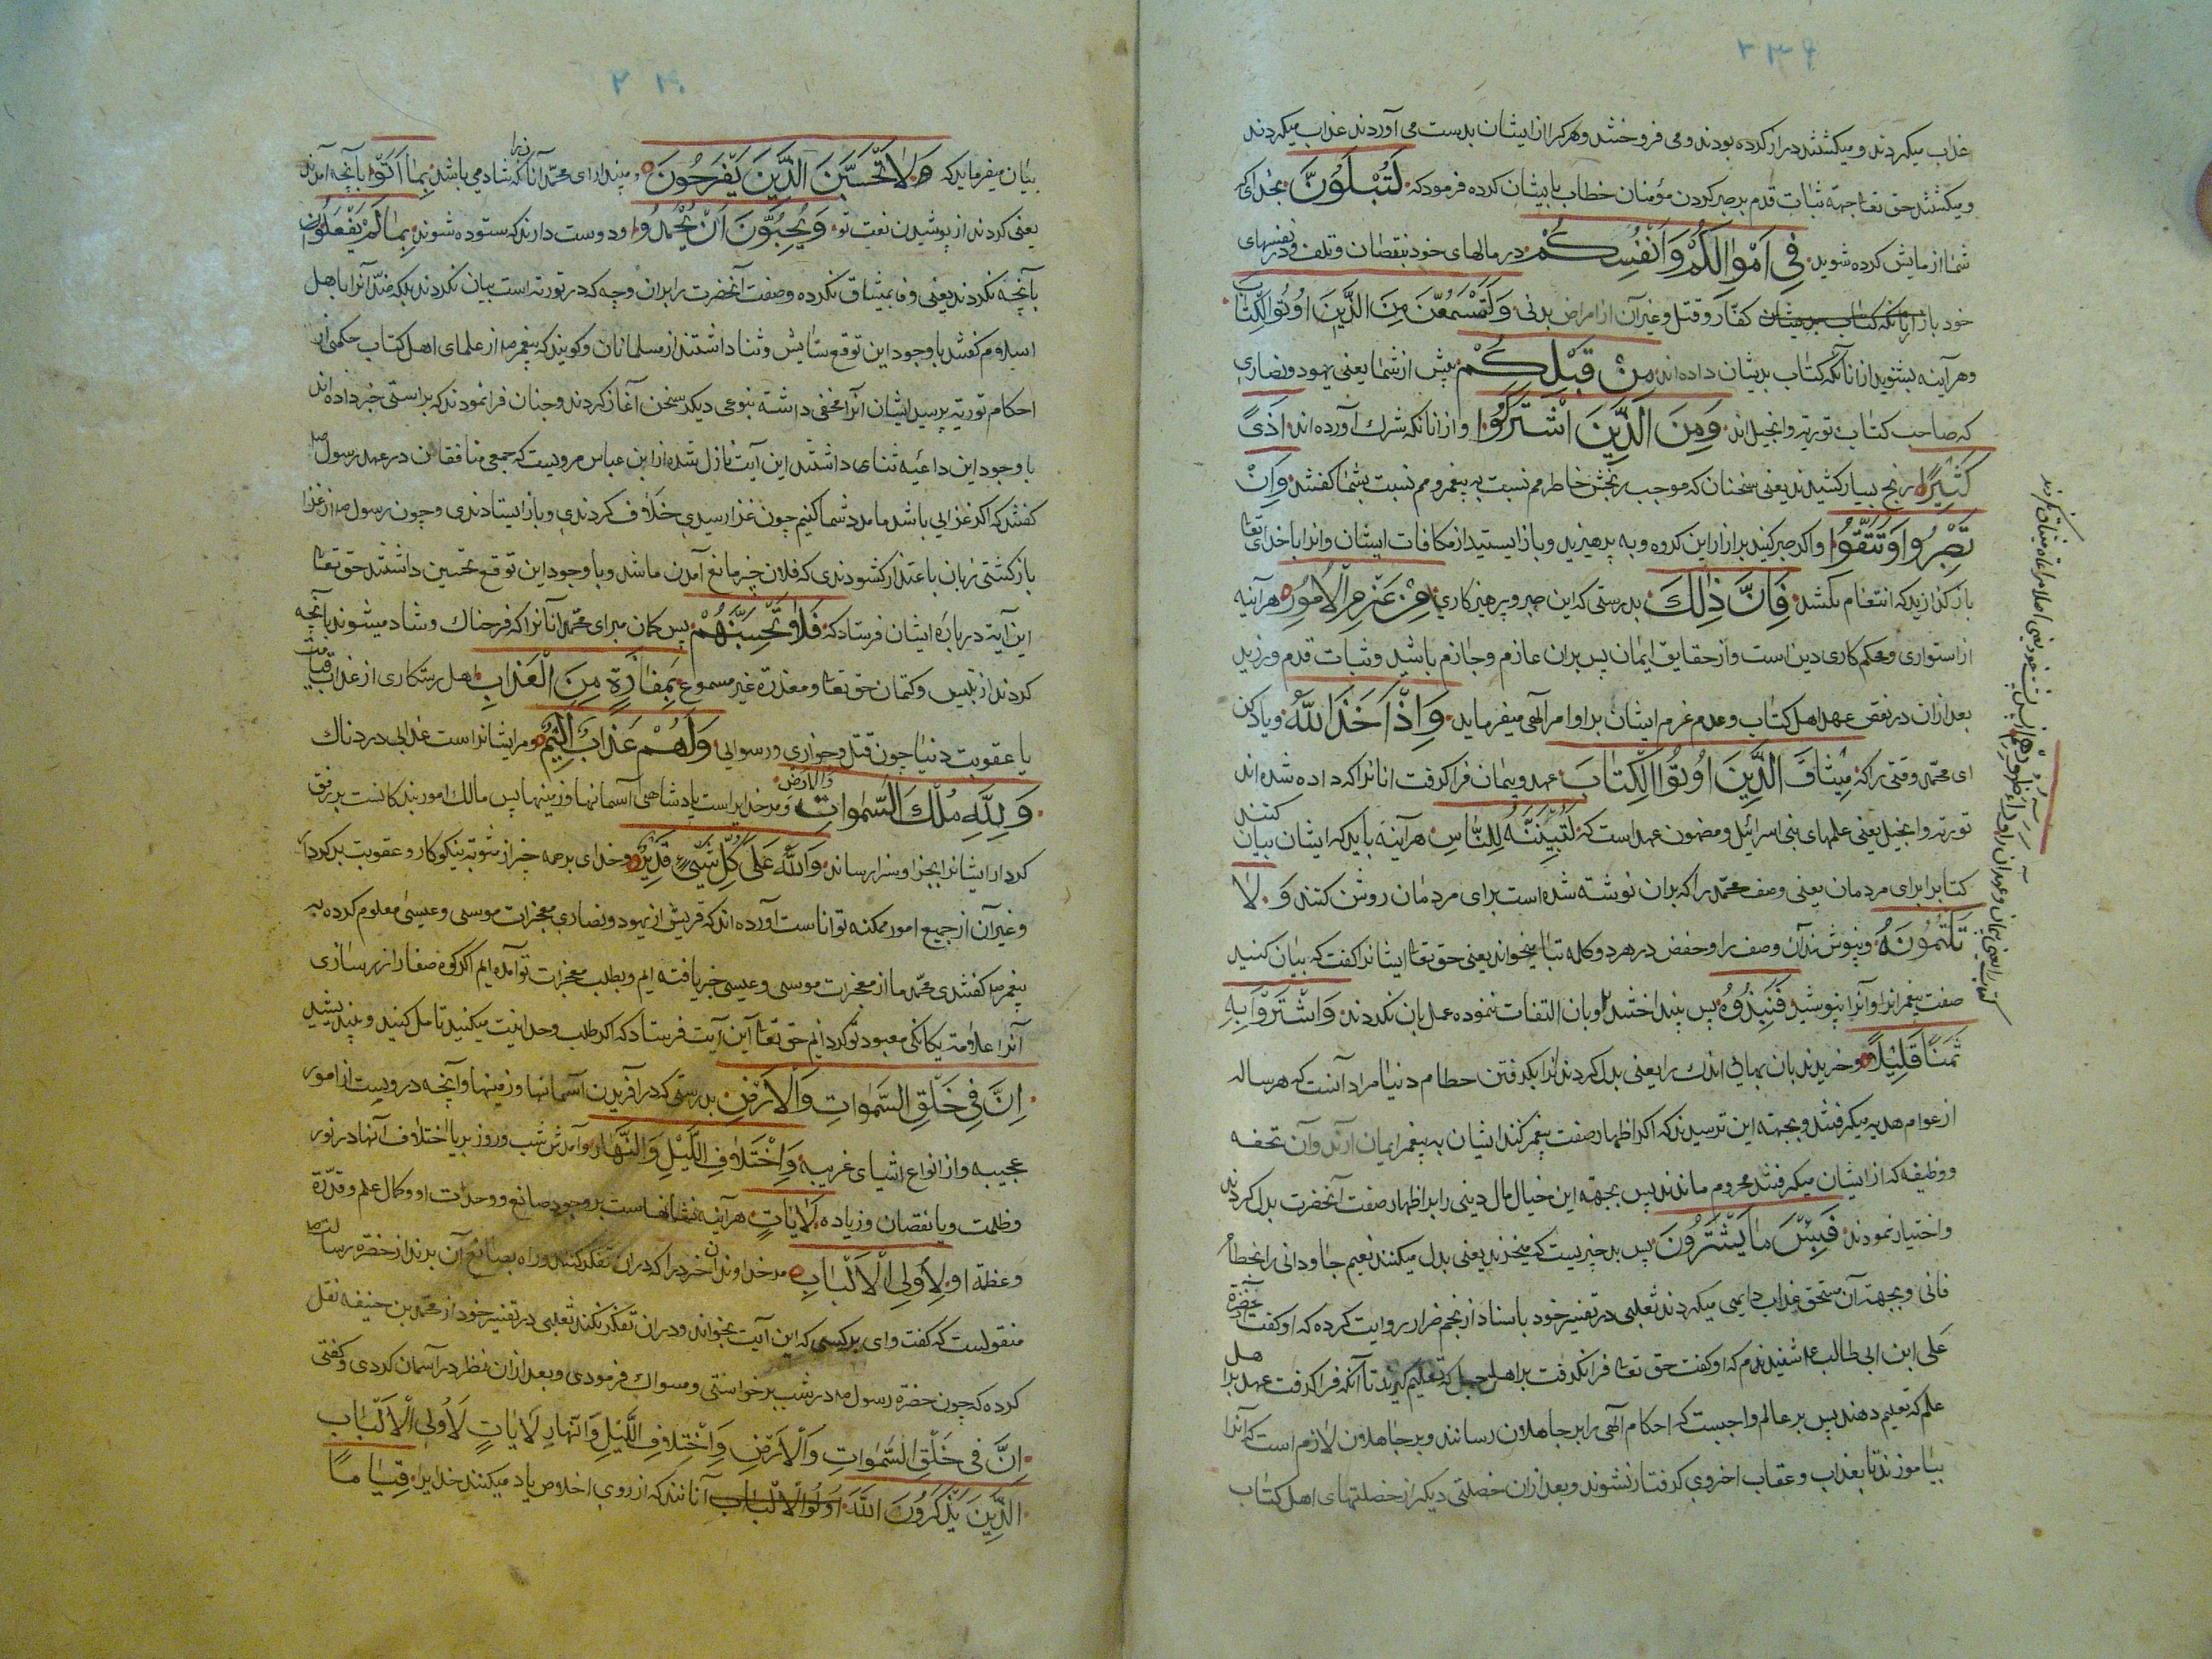 ۲۳۹
عذاب میکردند و میکشتند دراز کرده بودند و می فروختند و هر کرا از ایشان بدست می آوردند عذاب میکردند
و میکشتند حق تعا جهة ثبات قدم بر صبر کردن مؤمنان خطاب بایشان کرده فرمود که لَتُبْلَوُنَّ بخدای که
شما آزمایش کرده شوید فِي اَمْوَالِكُمْ وَاَنْفُسِكُمْ در مالهای خود بنقصان و تلف و در نفسهای
خود باز کفار و قتل و غیر آن از امراض بدنی وَلَتَسْمَعُنَّ مِنَ الَّذِينَ اُوتُوا الْكِتَابَ
و هر آینه بشنوید از آنانکه کتاب بدیشان داده اند مِنْ قَبْلِكُمْ پیش از شما یعنی یهود و نصاری
که صاحب کتاب توریة و انجیل اند وَمِنَ الَّذِينَ اَشْرَكُوا و از آنانکه شرک آورده اند اَذًى
كَثِيرًا رنج بسیار کشیدند یعنی سخنان که موجب رنجش خاطر هم نسبت به پیغمر و هم نسبت بشما کفتند وَاِنْ
تَصْبِرُوا وَتَتَّقُوا و اکر صبر کنید بر ازار این کروه و به پرهیزید و باز ایستید از مکافات ایشان و انرا با خدای تعا
باز کذارید که انتقام بکشد فَاِنَّ ذٰلِكَ بدرستی که این صبر و پرهیزکاری مِنْ عَزْمِ الْاُمُورِ هر آینه
از استواری و محکم کاری دین است و از حقایق ایمان پس بران عازم و جازم باشید و ثبات قدم ورزید
بعد ازان در نقض عهد اهل کتاب و عدم عزم ایشان بر اوامر الهی میفرماید وَاِذْ اَخَذَ اللّٰهُ و یاد کن
ای محمد وقتی را که مِيثَاقَ الَّذِينَ اُوتُوا الْكِتَابَ عهد و پیمان فرا کرفت انانرا که داده شده اند
توریة و انجیل یعنی علمای بنی اسرائیل و مضمون عهد است که لَتُبَيِّنُنَّهُ لِلنَّاسِ هر آینه باید که ایشان بیان کنند
کتابرا برای مردمان یعنی وصف محمد را که بران نوشته شده است برای مردمان روشن کنند وَلَا
تَكْتُمُونَهُ و نپوشند آن وصف را و حفص در هر دو کله بتا میخواند یعنی حق تعا ایشانرا کفت که بیان کنید
صفت پیغمرانرا و آنرا نپوشید فَنَبَذُوهُ پس بینداختند و بان التفات ننموده عمل بان نکردند وَاشْتَرَوْا بِهِ
ثَمَنًا قَلِيلًا و خریدند بان بهایی اندک را یعنی بدل کردند آنرا بکرفتن حطام دنیا مراد آنست که هر ساله
از عوام هدیه میکرفتند و بجهة این ترسیدند که اکر اظهار صفت پیغمر کنند ایشان به پیغمر ایمان آرند و آن تحفه
و وظیفه که از ایشان میکرفتند محروم مانند پس بجهة این خیال مال دینی را بر اظهار صفت آنحضرت بدل کردند
و اختیار نمودند فَبِئْسَ مَا يَشْتَرُونَ پس بد چیزیست که میخرند یعنی بدل میکنند نعیم جاودانی را بحطام
فانی و بجهة آن مستحق عذاب دایمی میکردند ثعلبی در تفسیر خود باسناد از نجم ضرار روایت کرده که او کفت از حضرة
علی ابن ابی طالب ع شنیدم که او کفت حق تعا فرا نکرفت بر اهل جهل که تعلیم کیرند تا آنکه فرا کرفت عهد بر اهل
علم که تعلیم دهند پس بر عالم واجبست که احکام الهی را بر جاهلان رسانند و بر جاهلان لازم است که آنرا
بیاموزند تا بعذاب و عقاب اخروی کرفتار نشوند و بعد ازان خصلتی دیکر از خصلتهای اهل کتاب
۲۴۰
بیان میفرماید که لَا تَحْسَبَنَّ الَّذِينَ يَفْرَحُونَ و مپندار ای محمد آنانرا که شاد می باشند بِمَا اَتَوْا بآنچه آمدند
یعنی کردند از پوشیدن نعت تو وَيُحِبُّونَ اَنْ يُحْمَدُوا و دوست دارند که ستوده شوند بِمَا لَمْ يَفْعَلُوا
بآنچه نکردند یعنی وفا بمیثاق نکرده و صفت آنحضرت را بران وجه که در توریة است بیان نکردند بلکه ضد آنرا با اهل
اسلام کفتند با وجود این توقع ستایش و ثنا داشتند از مسلمانان و کویند که پیغمر ص از علمای اهل کتاب حکمی از
احکام توریة پرسید ایشان آنرا مخفی داشته بنوعی دیکر سخن آغاز کردند و چنان فرا نمودند که براستی خبر داده اند
با وجود این داعیه ثنای داشتند این آیت نازل شد و از ابن عباس مرویست که جمعی منافقان در عهد رسول ص
کفتند که اکر غزایی باشد ما مدد شما کنیم چون غزا رسیدی خلاف کردندی و باز ایستادندی و چون رسول ص از غزا
باز کشتی زبان باعتذار کشودندی که فلان چیز مانع آمدن ما شد و با وجود این توقع تحسین داشتند حق تعا
این آیة در باره ایشان فرستاد که فَلَا تَحْسَبَنَّهُمْ پس کمان مبر ای محمد آنانرا که فرحناک و شاد میشوند بآنچه
کردند از تلبیس و کتمان حق تعا و معذرة غیر مسموع بِمَفَازَةٍ مِنَ الْعَذَابِ اهل رستکاری از عذاب قیامت
یا عقوبت دنیا چون قتل و خواری و رسوایی وَلَهُمْ عَذَابٌ اَلِيمٌ و مر ایشانراست عذابی دردناک
وَلِلّٰهِ مُلْكُ السَّمٰوَاتِ وَالْاَرْضِ و مر خدایراست پادشاهی آسمانها و زمینها پس مالک امور بندکانست بر وفق
کردار ایشانرا بجزا و سزا رساند وَاللّٰهُ عَلٰى كُلِّ شَيْءٍ قَدِيرٌ و خدای بر همه چیز از مثوبة نیکوکار و عقوبت بدکردار
و غیر آن از جمیع امور ممکنه تواناست آورده اند که قریش از یهود و نصاری معجزات موسی و عیسی معلوم کرده به
پیغمر ص کفتند ای محمد ما از معجزات موسی و عیسی خبر یافته ایم و بطلب معجزات تو آمده ایم اکر کوه صفا را زر سازی
آنرا علامة یکانکی معبود تو کردانیم حق تعا این آیت فرستاد که اکر طلب وحدانیت میکنید تامل کنید و بیندیشید
اِنَّ فِي خَلْقِ السَّمٰوَاتِ وَالْاَرْضِ بدرستی که در آفریدن آسمانها و زمینها و آنچه دروست از امور
عجیبه و از انواع اشیای غریبه وَاخْتِلَافِ اللَّيْلِ وَالنَّهَارِ و آمد شد شب و روز بریا اختلاف آنها در نور
و ظلمت و یا نقصان و زیاده لَاٰيَاتٍ هر آینه نشانهاست بر وجود صانع و وحدت او و کمال علم و قدرة
و عظمة او لِاُولِي الْاَلْبَابِ مر خداوندان خرد را که دران تفکر کنند و راه بصانع آن برند از حضرة رسالت ص
منقولست که کفت وای بر کسی که این آیت بخواند و دران تفکر نکند ثعلبی در تفسیر خود از محمد بن حنیفه نقل
کرده که چون حضرة رسول ص در شب برخواستی و مسواک فرمودی و بعد ازان نظر در آسمان کردی و کفتی
اِنَّ فِي خَلْقِ السَّمٰوَاتِ وَالْاَرْضِ وَاخْتِلَافِ اللَّيْلِ وَالنَّهَارِ لَاٰيَاتٍ لِاُولِي الْاَلْبَابِ
الَّذِينَ يَذْكُرُونَ اللّٰهَ اولوا الالباب آنانند که از روی اخلاص یاد میکنند خدایرا قِيَامًا